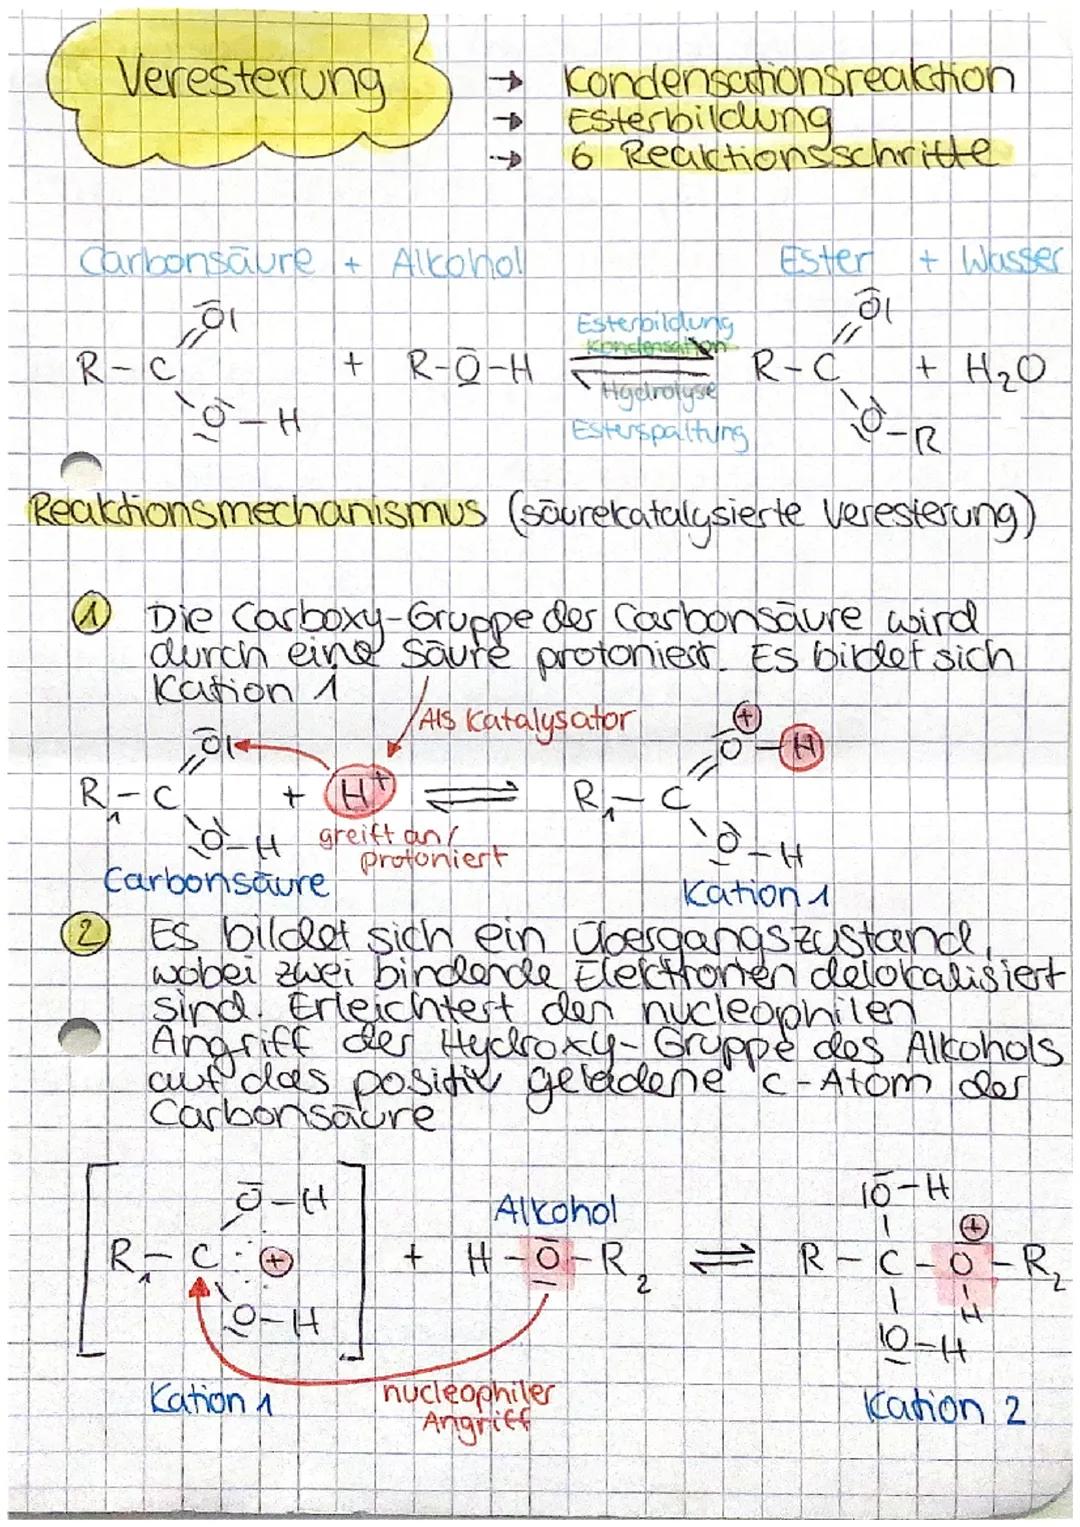 Veresterung → Kondensationsreaktion
→ Esterbildung
→ 6 Reaktionsschritte
Carbonsäure + Alkohol Ester + Wasser
R-C O O-H + R-O-H ⇌ R-C O O-R + H₂O
Esterbildung
Kondensation
Hydrolyse
Esterspaltung
Reaktionsmechanismus (säurekatalysierte Veresterung)
① Die Carboxy-Gruppe der Carbonsäure wird
durch eine Säure protoniert. Es bildet sich
Kation 1
Als Katalysator
R₁-C O O-H + H⁺ ⇌ R₁-C O⊕-H O-H
greift an/
protoniert
Carbonsäure Kation 1
② Es bildet sich ein Übergangszustand,
wobei zwei bindende Elektronen delokalisiert
sind. Erleichtert den nucleophilen
Angriff der Hydroxy-Gruppe des Alkohols
auf das positiv geladene C-Atom der
Carbonsäure
Alkohol
[R₁-C O-H ⊕ O-H] + H-O-R₂ ⇌ R-C O-H O⊕-R₂ H O-H
Kation 1 nucleophiler Kation 2
Angriff